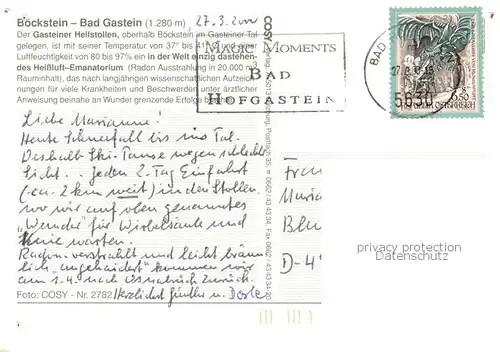 Böckstein – Bad Gastein (1.280 m)
27.3.2000
Der Gasteiner Heilstollen, oberhalb Böckstein im Gasteiner Tal
gelegen, ist mit seiner Temperatur von 37° bis 41° und einer
Luftfeuchtigkeit von 80 bis 97% ein in der Welt einzig dastehen-
des Heißluft-Emanatorium (Radon Ausstrahlung in 20.000 m³
Rauminhalt), das nach langjährigen wissenschaftlichen Aufzeich-
nungen für viele Krankheiten und Beschwerden unter ärztlicher
Anweisung beinahe an Wunder grenzende Erfolge
MAGIC MOMENTS
BAD
HOFGASTEIN
BAD
5630
6.50
Liebe Marianne!
Heute Schneefall bis ins Tal.
Deshalb Ski-Pause wegen schlechter
Sicht. Jeden 2. Tag Einfahrt
(ca. 2 km weit) in den Stollen.
wo wir auf oben genanntes
"Wunder" für Wirbelsäule und
Knie warten.
Radon-verstrahlt und leicht bräun-
lich "angehaucht" kommen wir
am 1.4. nach Osnabrück zurück.
Herzlichst Günther u. Dörte
Foto: COSY - Nr. 2782
COSY
Postfach 35
0662 / 43 43 34, Fax 0662 / 43 43 34-20
Frau
Maria
Blu
D-4
privacy protection
Datenschutz